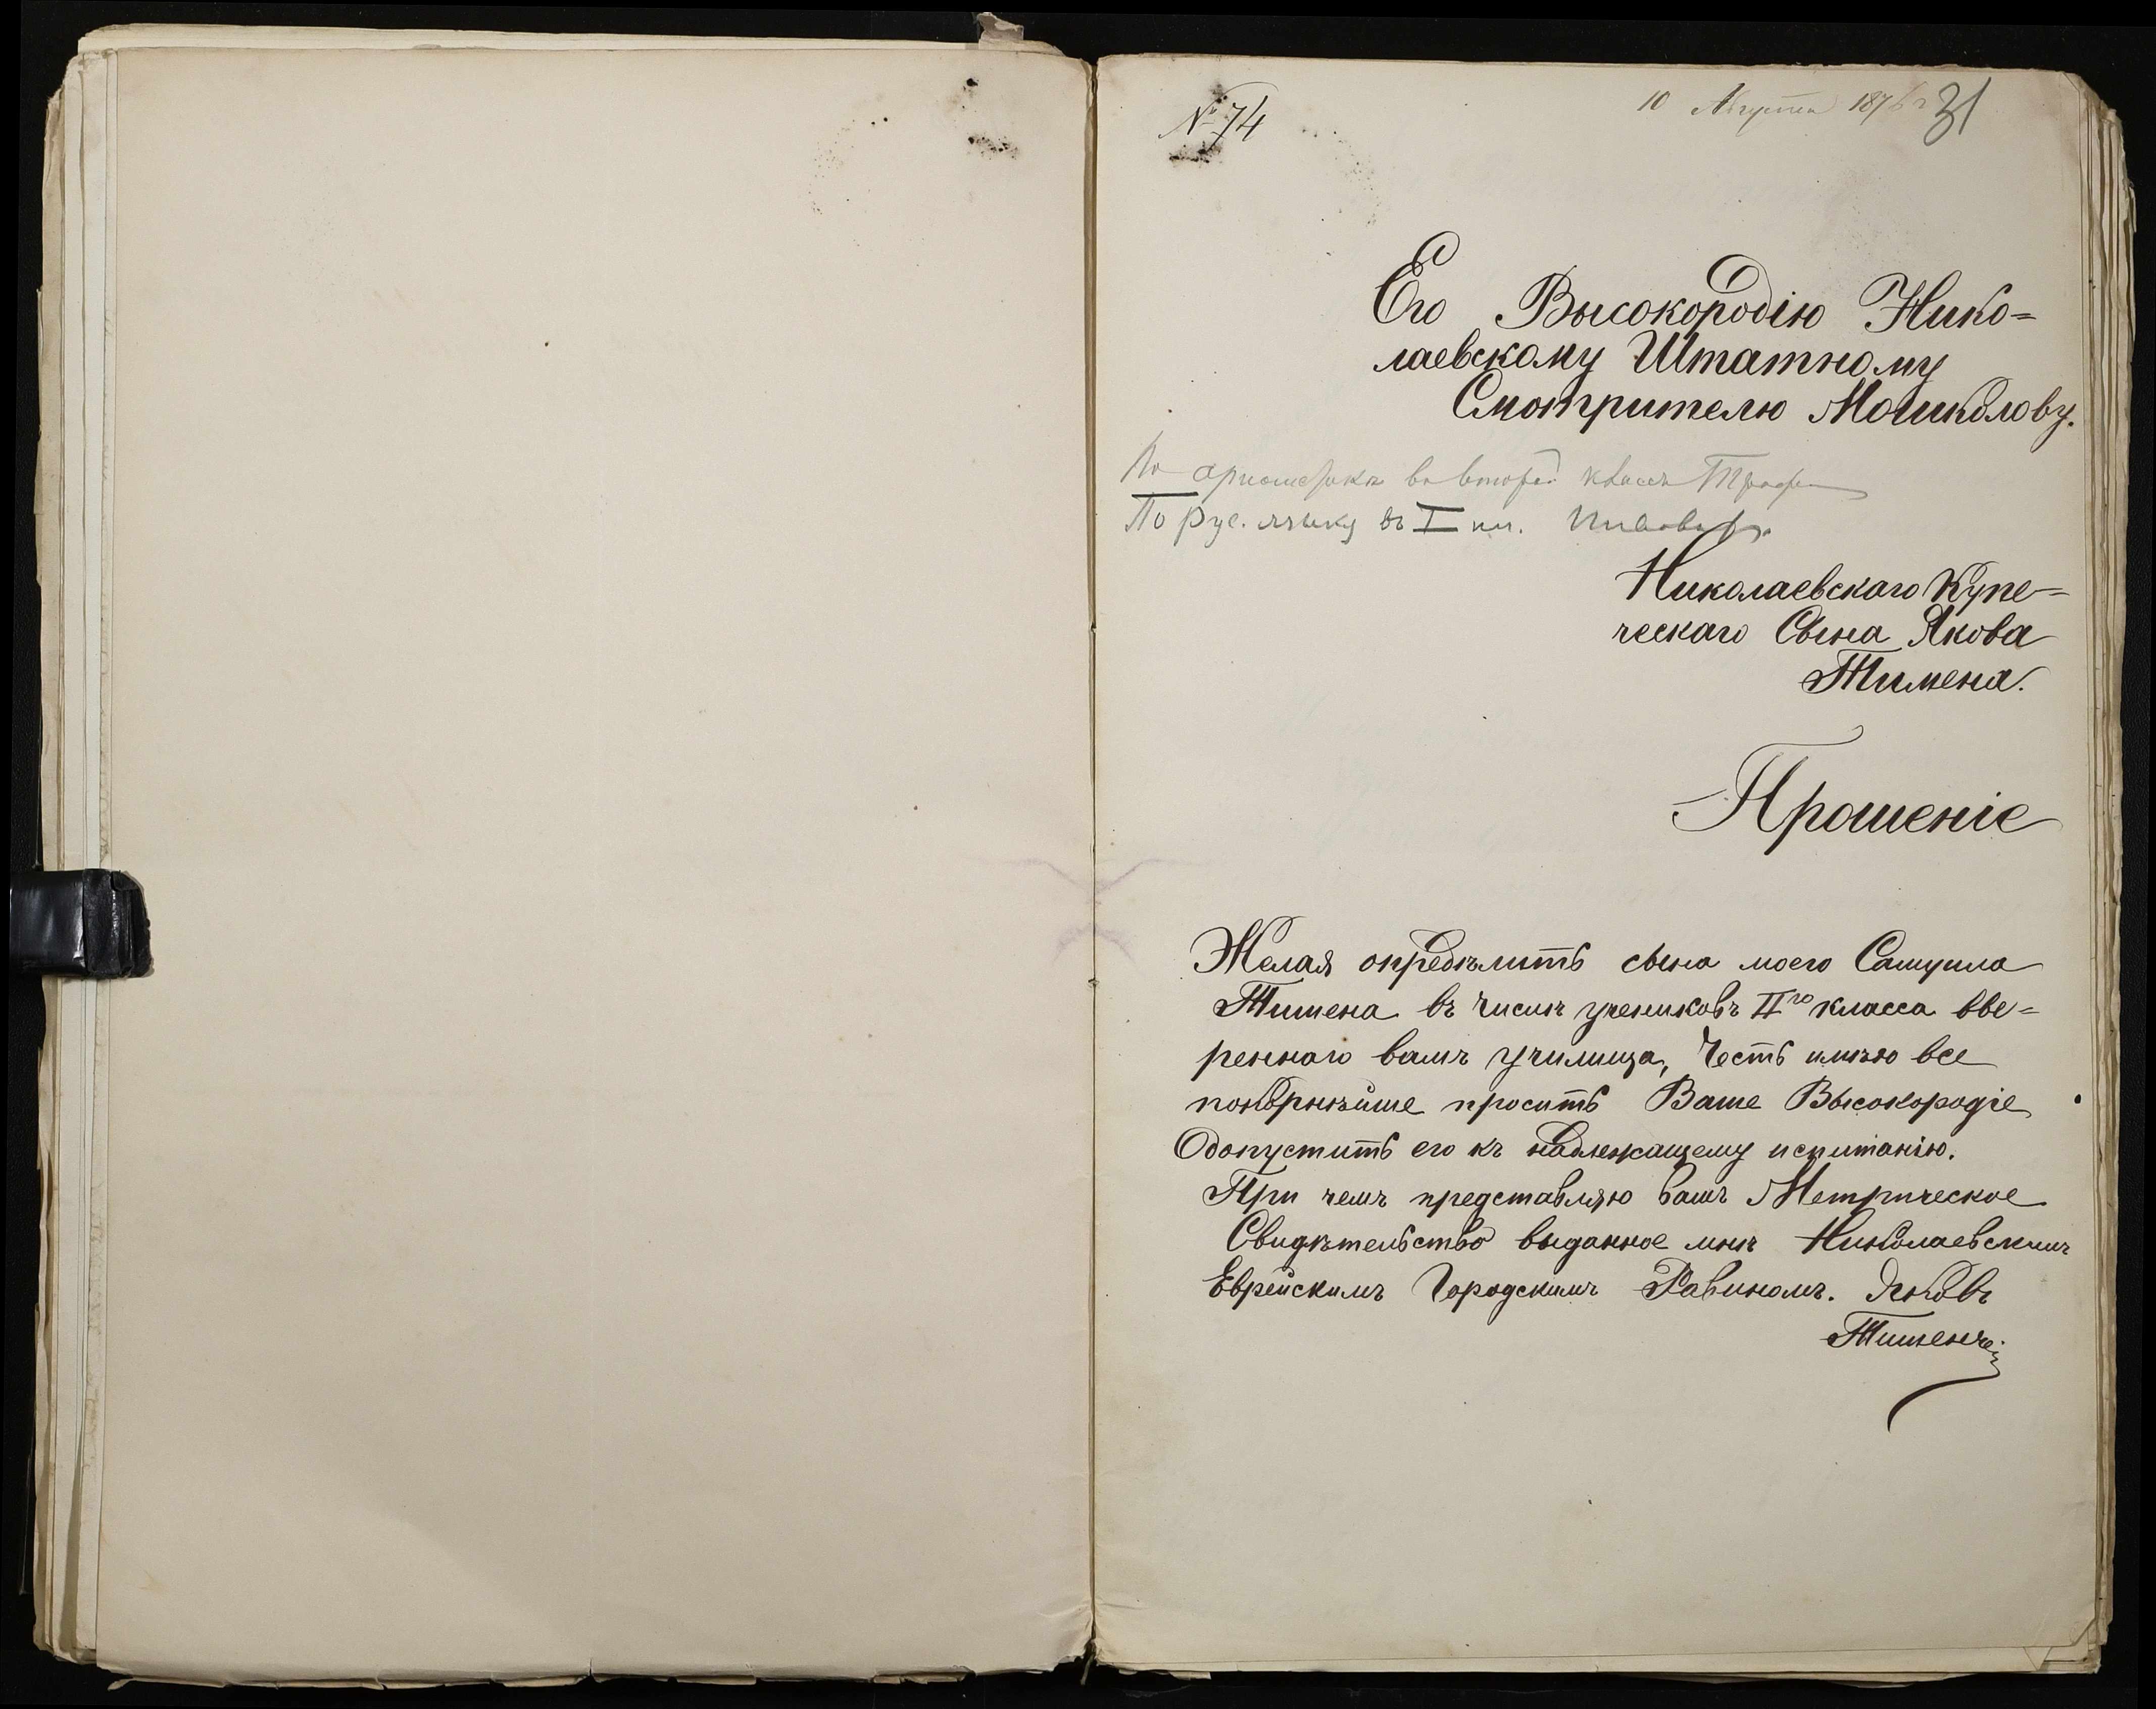 № 74
10 Августа 1876 г 31
Его Высокородію Нико=
лаевскому Штатному
Смотрителю Мошколову.
По арифметикѣ во второй классъ
По Рус. языку въ I кл.
Николаевскаго Купе=
ческаго Сына Якова
Тимена.
Прошеніе
Желая опредѣлить сына моего Самуила
Тимена въ числѣ учениковъ IIго класса вве=
реннаго вамъ училища, Честь имѣю все
покорнѣйше просить Ваше Высокородіе
Одопустить его къ надлежащему испитанію.
При чемъ представляю вамъ Метрическое
Свидѣтельство выданное мнѣ Николаевскимъ
Еврейскимъ Городскимъ Равиномъ. Яковъ
Тименъ